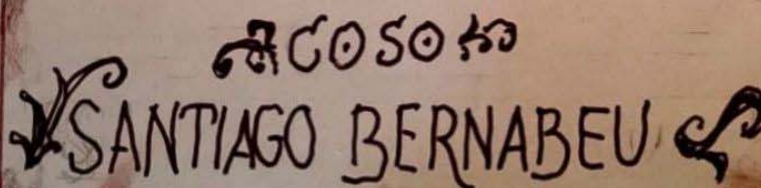 COSO
SANTIAGO BERNABEU